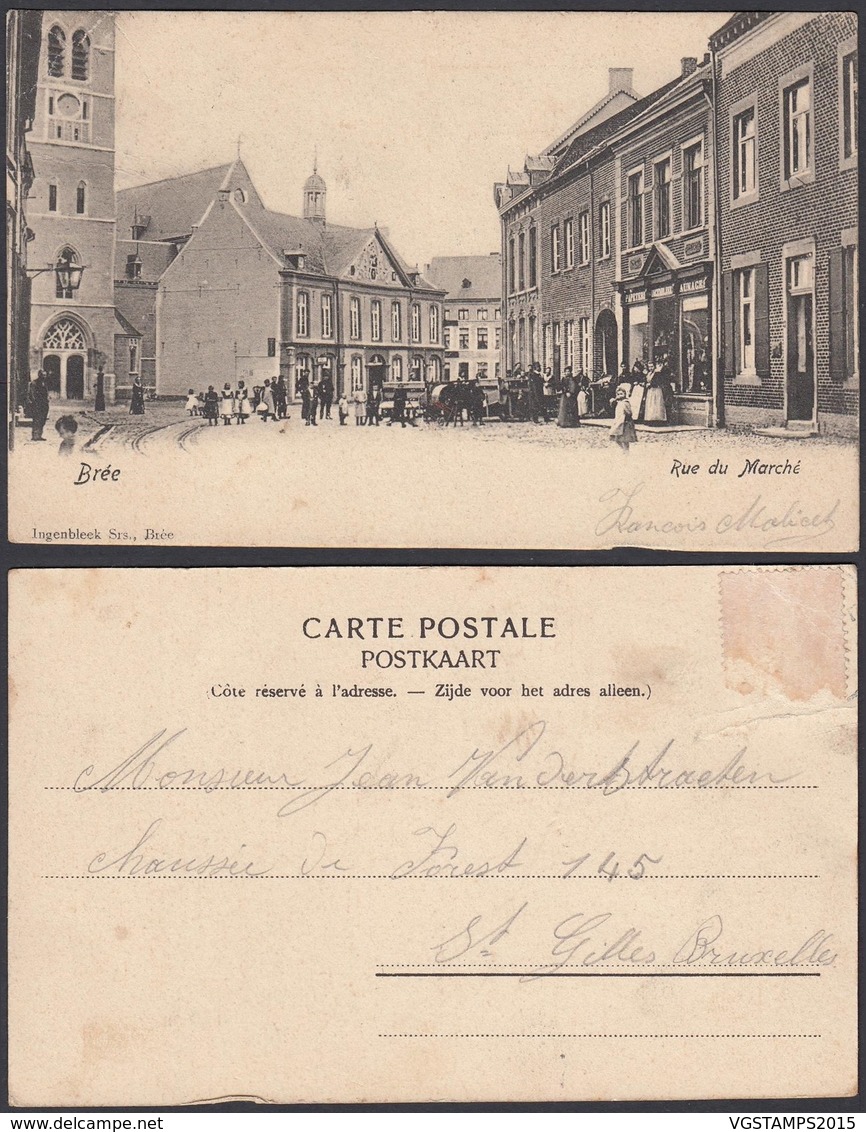 Brée
Rue du Marché
Francois Malicet
Ingenbleek Srs., Brée
CARTE POSTALE
POSTKAART
(Côte réservé à l'adresse. — Zijde voor het adres alleen.)
Monsieur Jean Vanderstraeten
Chaussée de Forest 145
St Gilles Bruxelles
VGSTAMPS2015